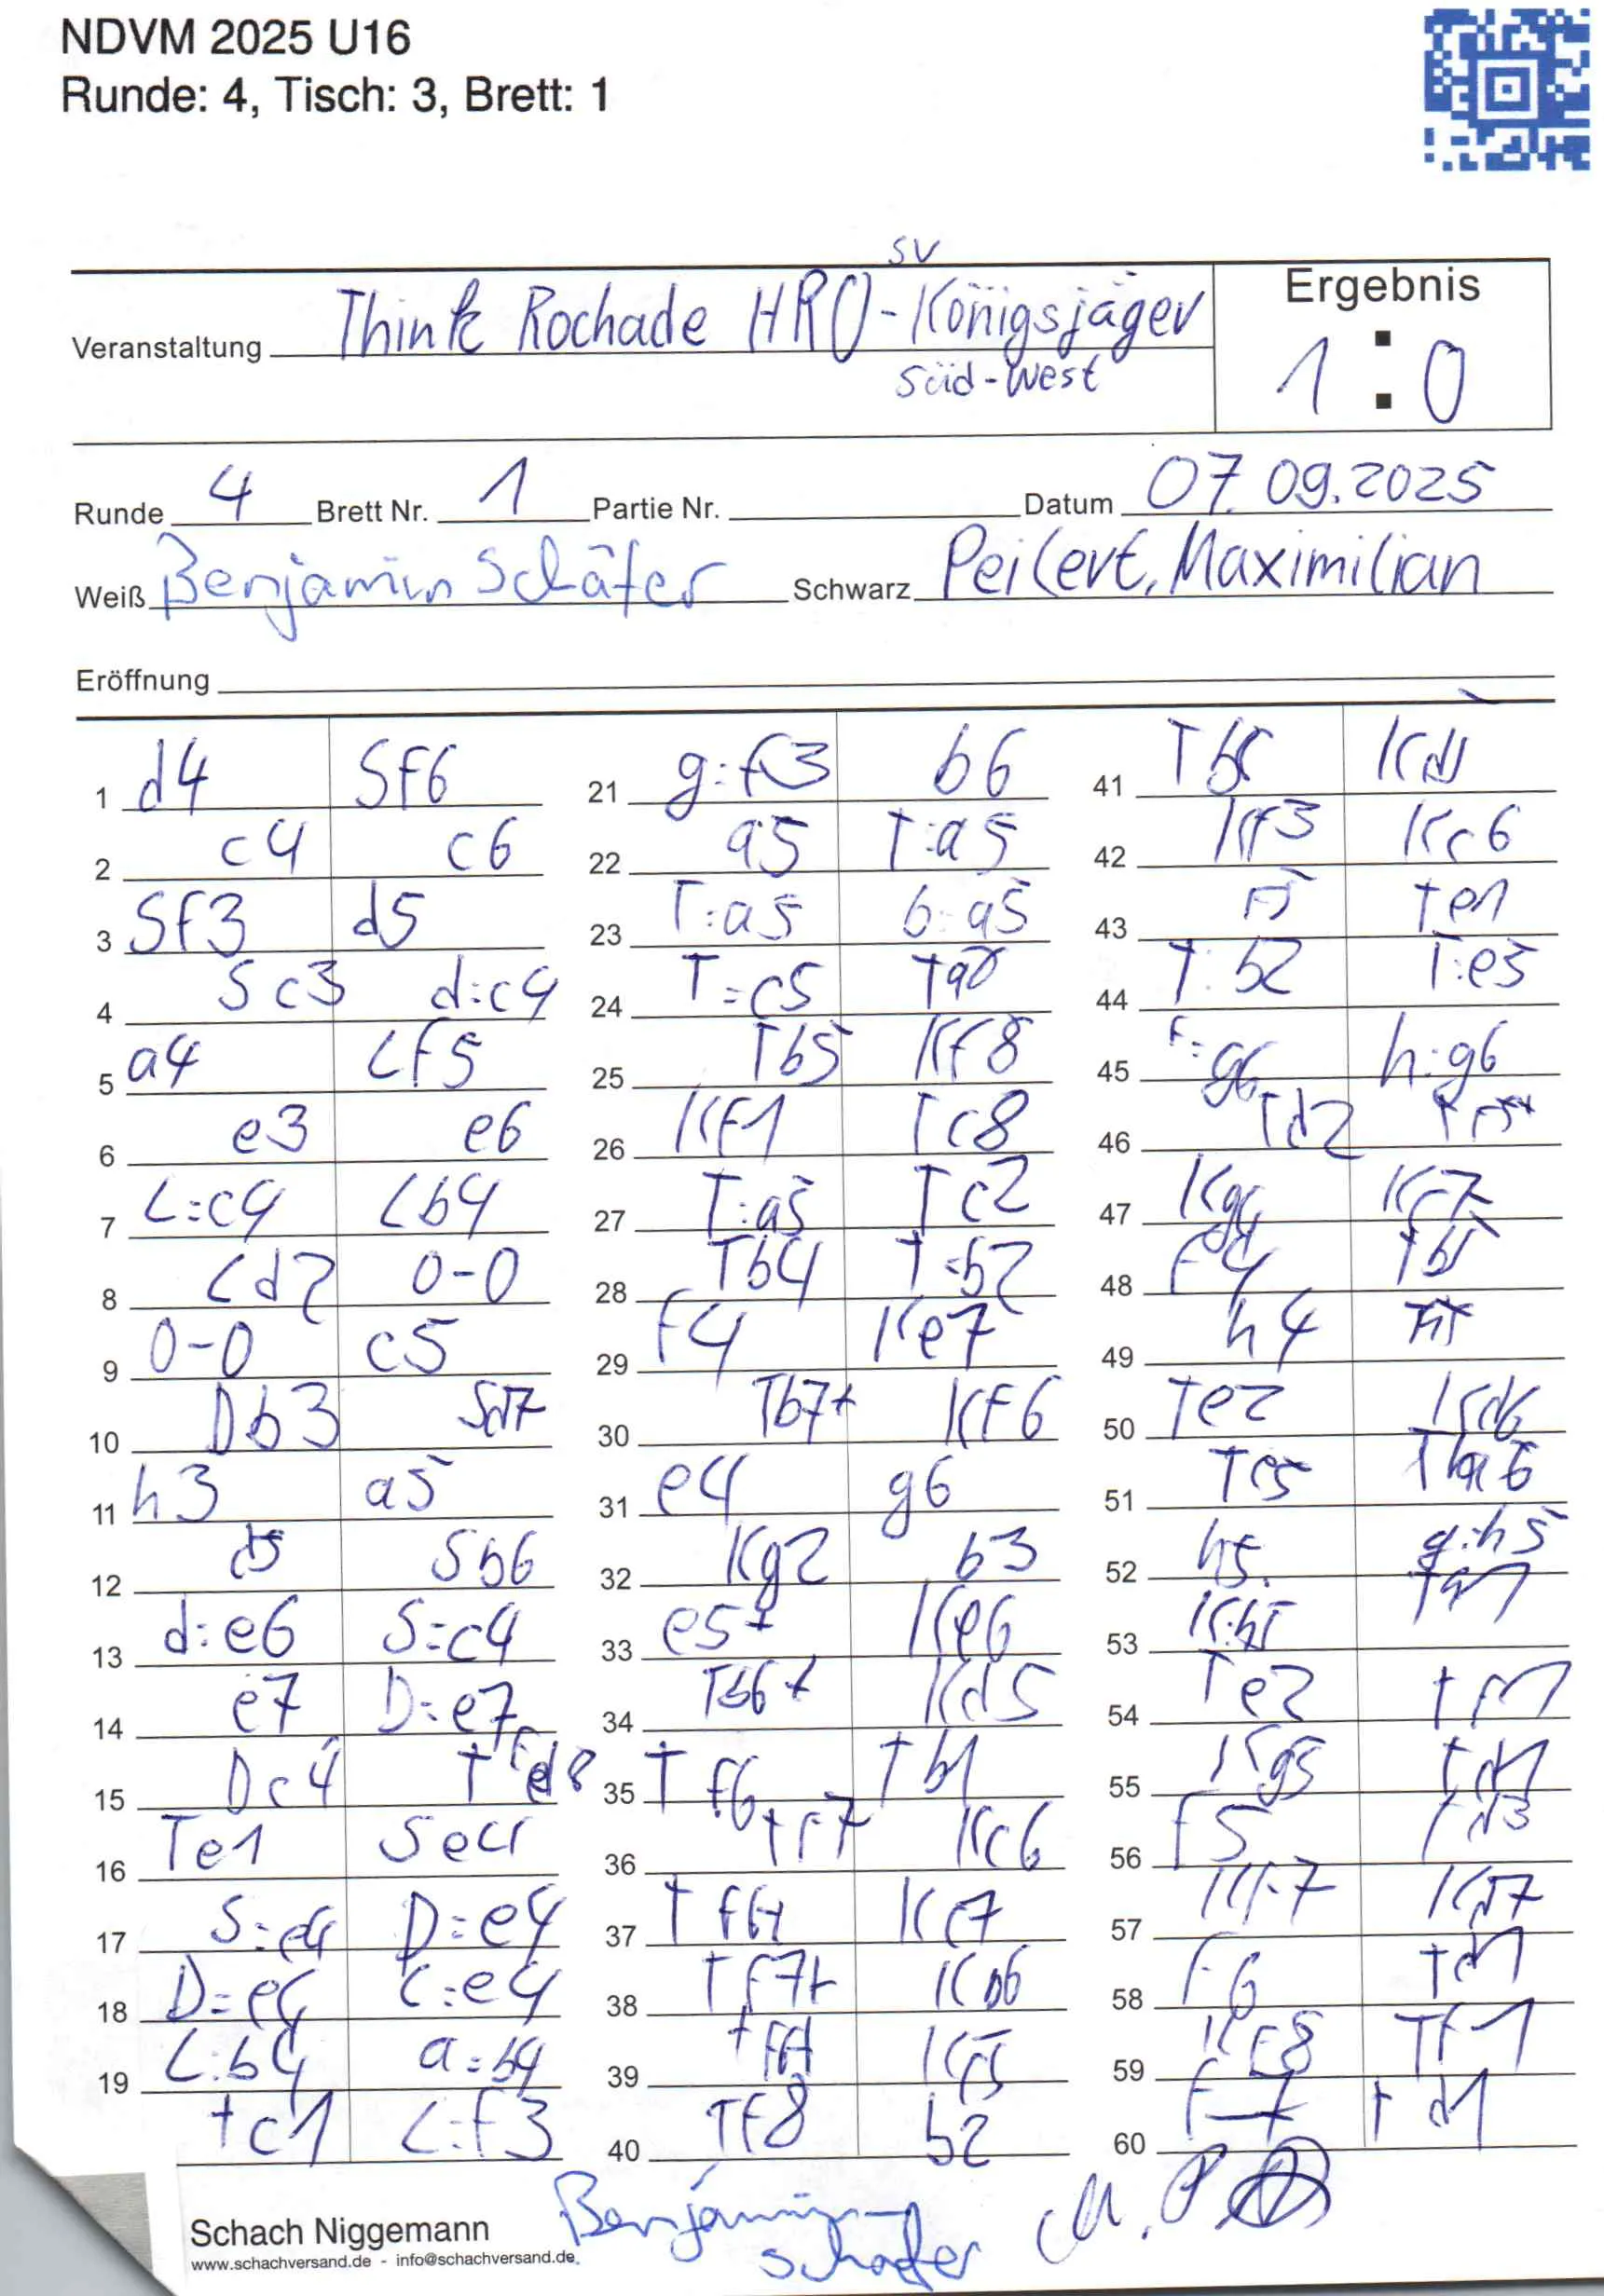 NDVM 2025 U16
Runde: 4, Tisch: 3, Brett: 1
SV
Veranstaltung Think Rochade HRO-Königsjäger
Süd-West
Ergebnis
1 : 0
Runde 4 Brett Nr. 1 Partie Nr. Datum 07.09.2025
Weiß Benjamin Schäfer Schwarz Peilert, Maximilian
Eröffnung
1 d4 Sf6
2 c4 c6
3 Sf3 d5
4 Sc3 d:c4
5 a4 Lf5
6 e3 e6
7 L:c4 Lb4
8 Ld2 0-0
9 0-0 c5
10 Db3 Sd7
11 h3 a5
12 d5 Sb6
13 d:e6 S:c4
14 e7 D:e7
15 Dc4 Tfd8
16 Te1 Se4
17 S:e4 D:e4
18 D:e4 L:e4
19 L:b4 a:b4
Tc1 L:f3
21 g:f3 b6
22 a5 T:a5
23 T:a5 b:a5
24 T:c5 Ta8
25 Tb5 Kf8
26 Kf1 Tc8
27 T:a5 Tc2
28 Tb4 T:b2
29 f4 Ke7
30 Tb7+ Kf6
31 e4 g6
32 Kg2 b3
33 e5+ Ke6
34 Tb6+ Kd5
35 Tf6 Tb1
36 Tf7 Kc6
37 Tf6+ Kc7
38 Tf7+ Kb6
39 Tf6+ Kc5
40 Tf8 b2
41 Tb8 Kd5
42 Kf3 Kc6
43 f5 Te1
44 T:b2 T:e5
45 f:g6 h:g6
46 Td2 Tf5+
47 Kg4 Kc7
48 f4 Tb5
49 h4
50 Te2 Kd6
51 Te5 Ta6
52 h5 g:h5
53 K:h5 Ta1
54 Te2 Tf1
55 Kg5 Td1
56 f5 Td3
57 Kf7 Kd7
58 f6 Td1
59 Kf8 Tf1
60 f7 Td1
Benjamin
Schäfer
M. P
Schach Niggemann
www.schachversand.de - info@schachversand.de